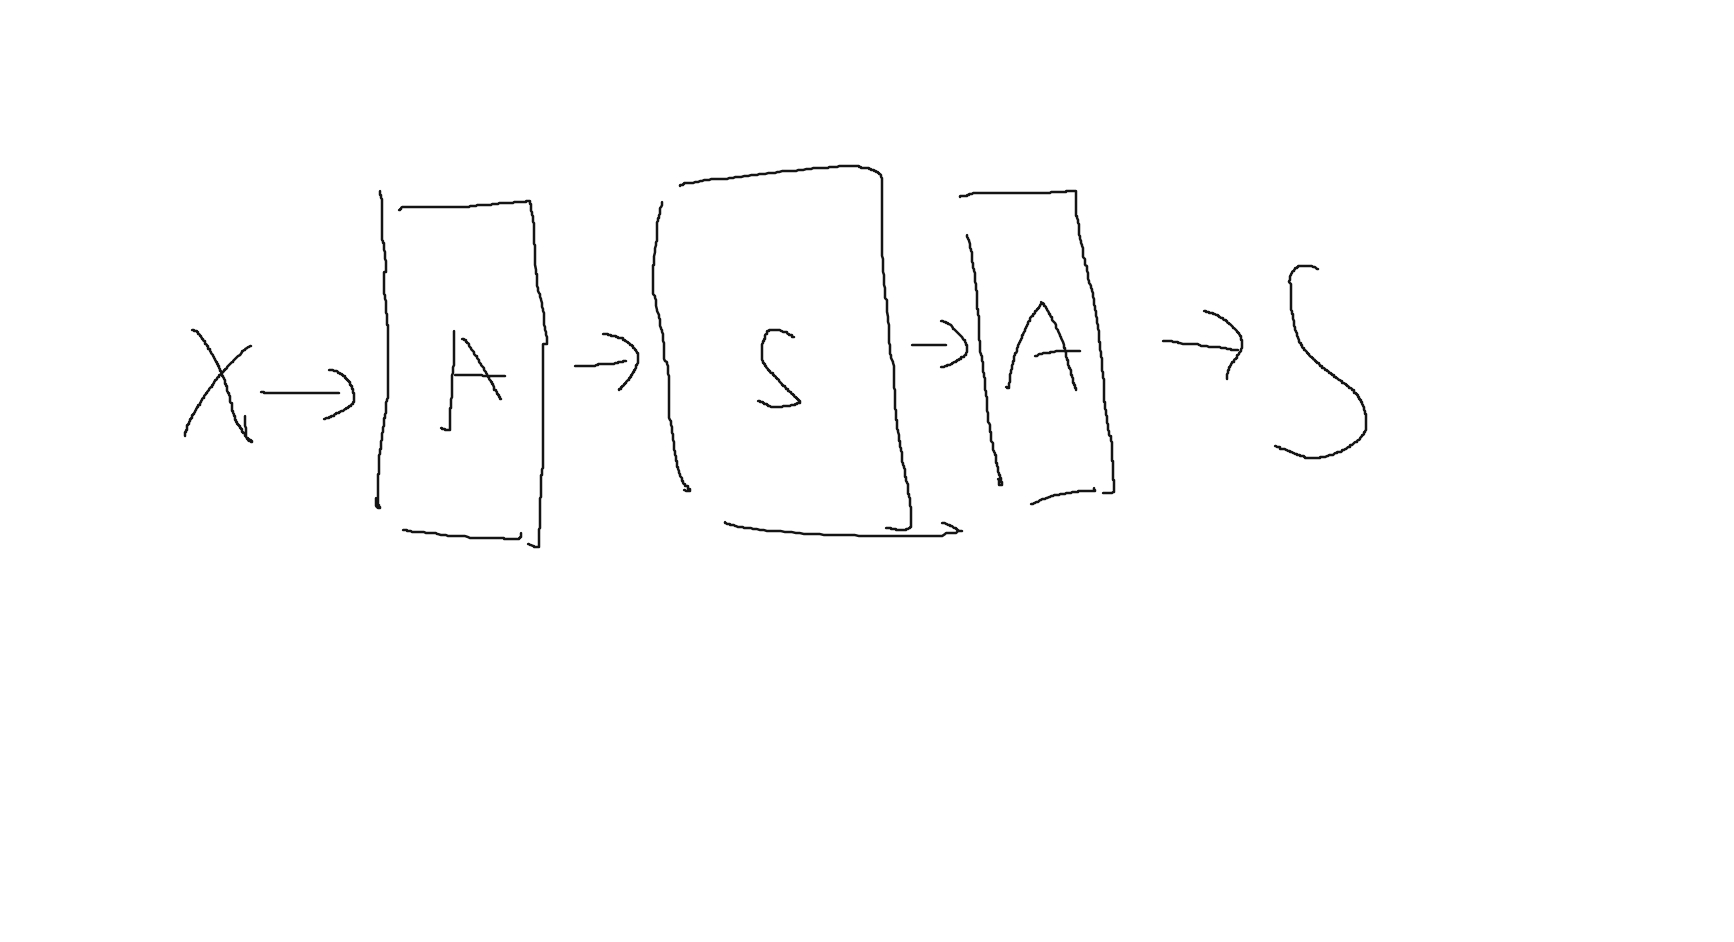 X → A → S → A → S